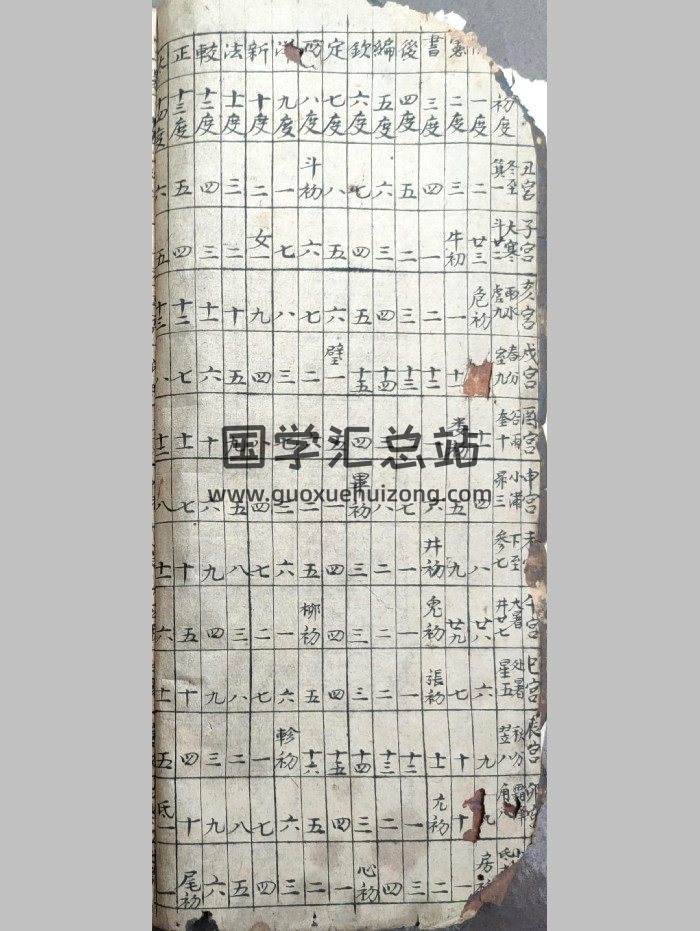 憲書後編欽定西洋新法較正
初度 一度 二度 三度 四度 五度 六度 七度 八度 九度 十度 十一度 十二度 十三度 十四度
丑宮 冬至 箕一 二 三 四 五 六 七 八 斗初 一 二 三 四 五 六
子宮 大寒 斗廿二 廿三 牛初 一 二 三 四 五 六 七 女一 二 三 四 五
亥宮 雨水 虛九 危初 一 二 三 四 五 六 七 八 九 十 十一 十二 十三
戌宮 春分 室九 十一 十二 十三 十四 十五 壁一 二 三 四 五 六 七 八
酉宮 谷雨 奎十 十一 婁初 四 十 十一 十二
申宮 小滿 昴三 四 五 六 七 八 畢初 一 二 三 四 五 六 七 八
未 下至 參七 八 九 井初 一 二 三 四 五 六 七 八 九 十 十一
午宮 大暑 井廿七 廿八 廿九 鬼初 一 二 三 四 柳初 一 二 三 四 五 六
巳宮 处暑 星五 六 七 張初 一 二 三 四 五 六 七 八 九 十 十一
辰宮 秋分 翌八 九 十 十一 十二 十三 十四 十五 十六 軫初 一 二 三 四 五
角 十 亢初 一 二 三 四 五 六 七 八 九 十 氐一
房初 一 二 三 四 心初 一 二 三 四 五 六 尾初 一
国学汇总站
www.guoxuehuizong.com